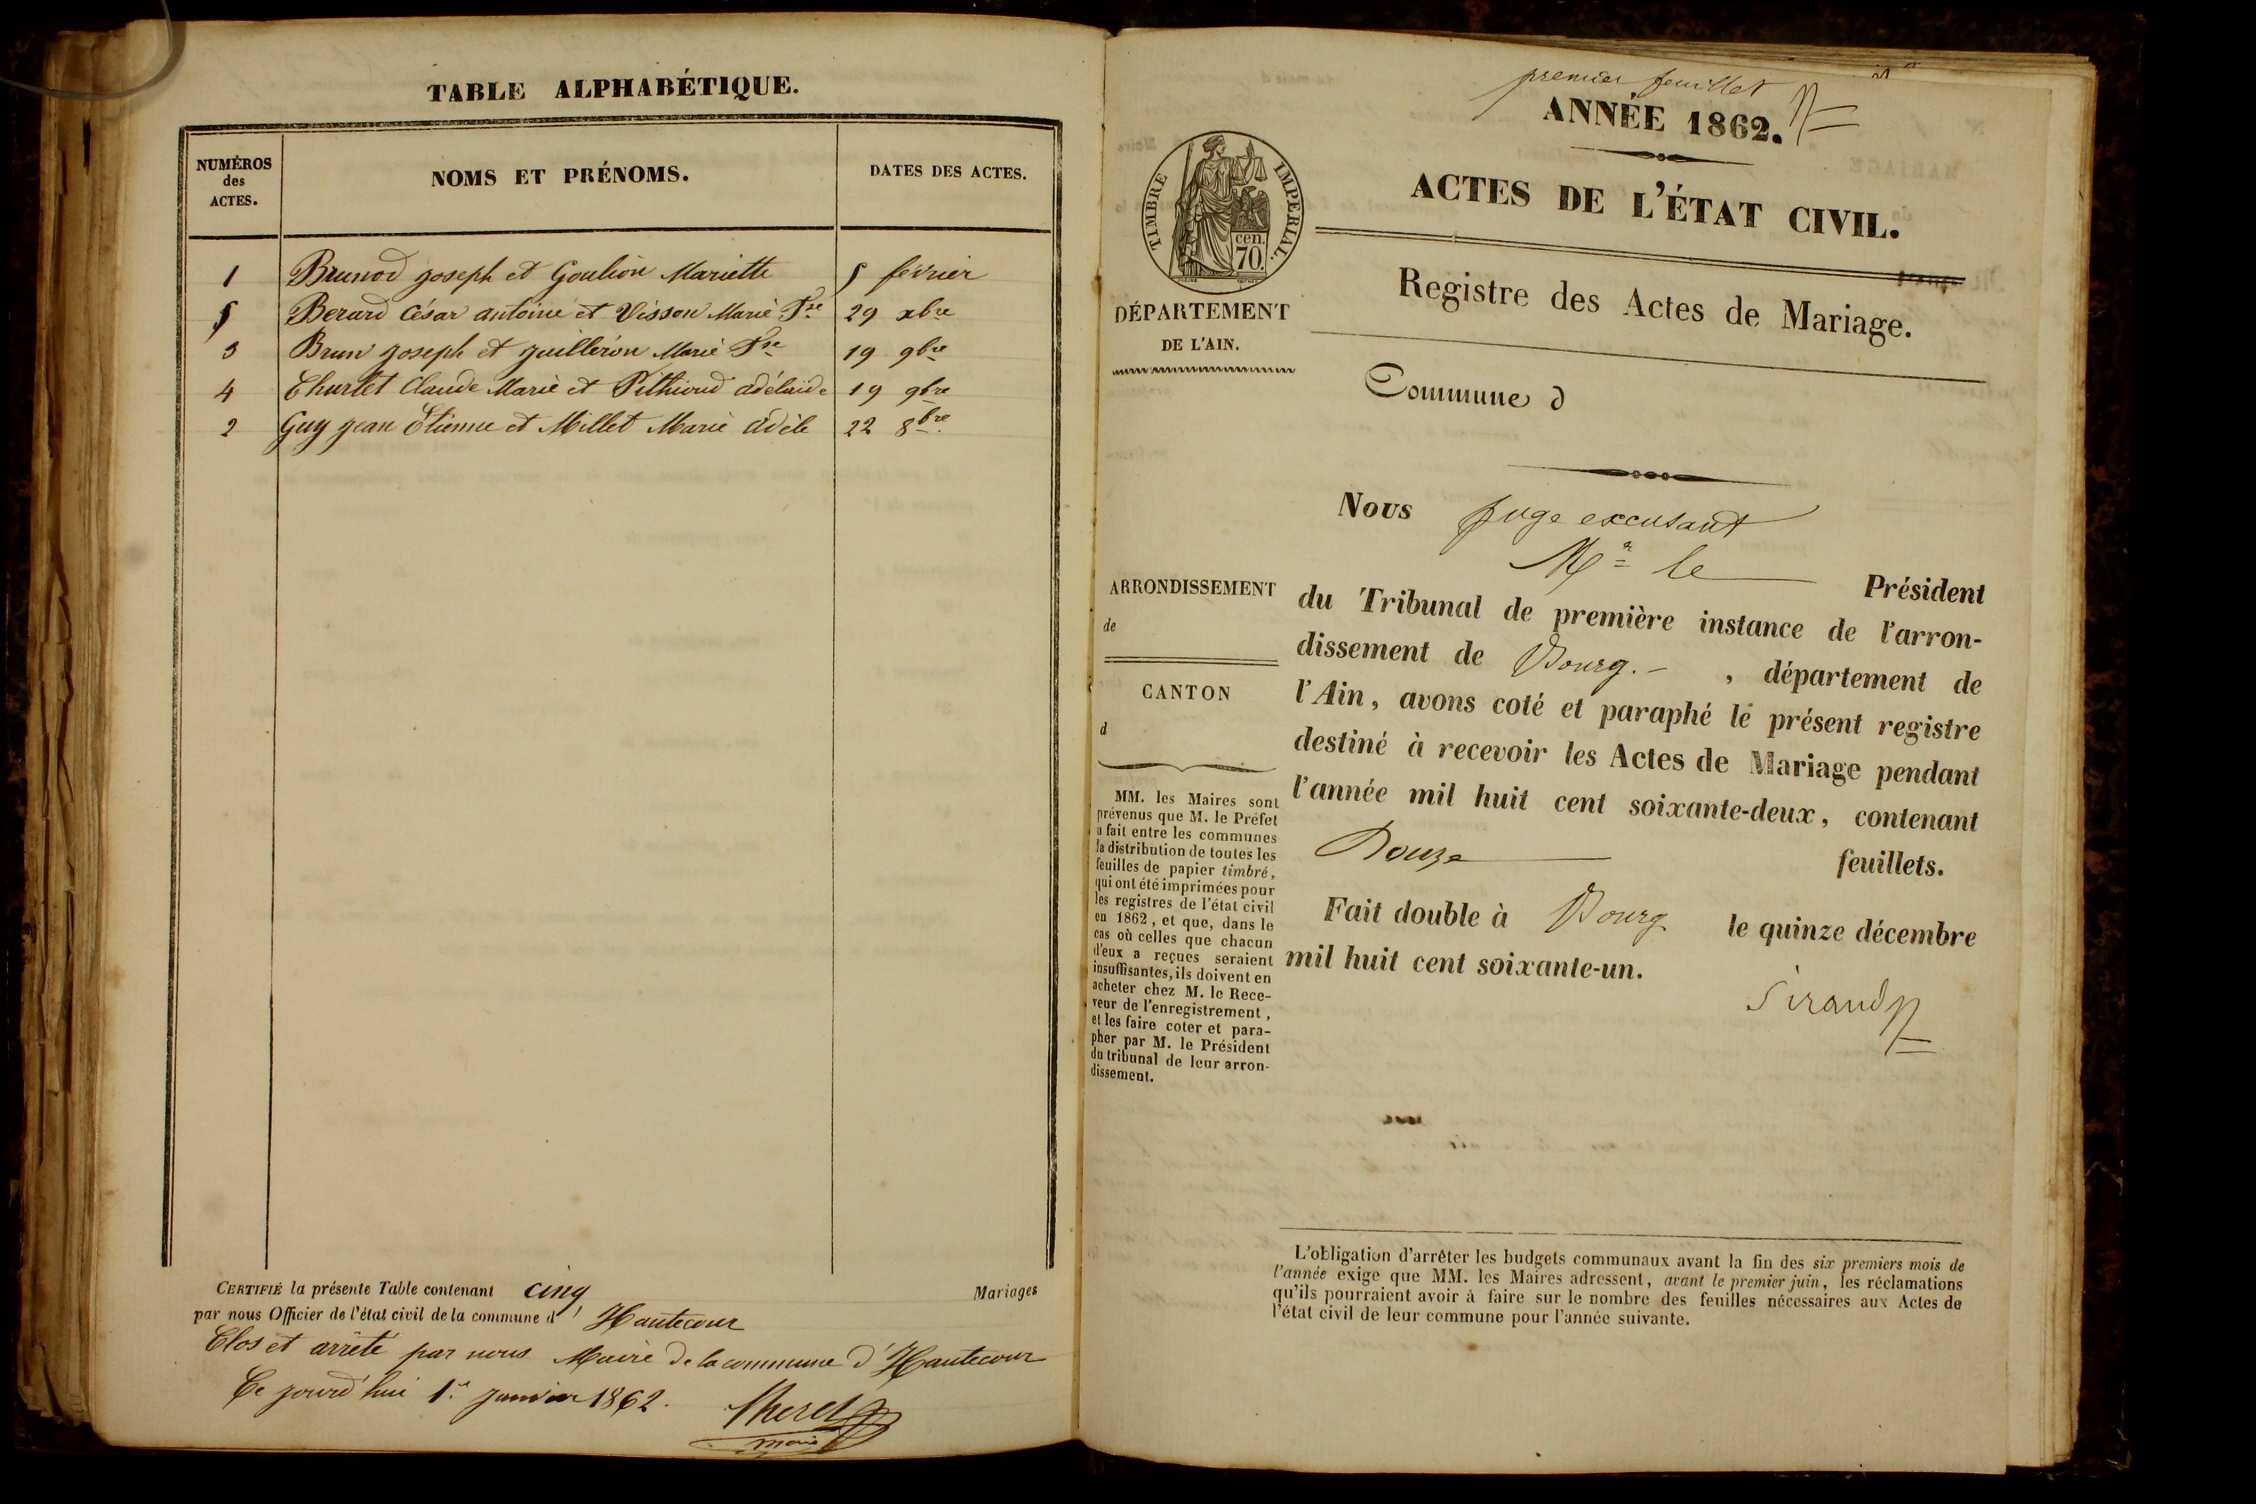 TABLE ALPHABÉTIQUE.
NUMÉROS
des
ACTES.
NOMS ET PRÉNOMS.
DATES DES ACTES.
1 Brunod joseph et Goulion Mariette 5 février
5 Berard César antoine et Visson Marie Fse 29 xbre
3 Brun joseph et juilleron Marie Fse 19 9bre
4 Charlet Claude Marie et Pithioud adélaïde 19 9bre
2 Guy jean Etienne et Millet Marie adèle 22 8bre
CERTIFIÉ la présente Table contenant cinq Mariages
par nous Officier de l'état civil de la commune d' Hautecour
Clos et arrêté par nous Maire de la commune d'Hautecour
Ce jourd'hui 1er janvier 1862.
maire
premier feuillet
ANNÉE 1862.
ACTES DE L'ÉTAT CIVIL.
TIMBRE IMPERIAL.
cen.
70.
Registre des Actes de Mariage.
DÉPARTEMENT
DE L'AIN.
Commune d
Nous juge excusant
Mr le Président
du Tribunal de première instance de l'arron-
dissement de Bourg. , département de
l'Ain, avons coté et paraphé le présent registre
destiné à recevoir les Actes de Mariage pendant
l'année mil huit cent soixante-deux, contenant
Douze feuillets.
Fait double à Bourg le quinze décembre
mil huit cent soixante-un.
Siraud
ARRONDISSEMENT
de
CANTON
d
MM. les Maires sont
prévenus que M. le Préfet
a fait entre les communes
la distribution de toutes les
feuilles de papier timbré,
qui ont été imprimées pour
les registres de l'état civil
en 1862, et que, dans le
cas où celles que chacun
d'eux a reçues seraient
insuffisantes, ils doivent en
acheter chez M. le Rece-
veur de l'enregistrement,
et les faire coter et para-
pher par M. le Président
du tribunal de leur arron-
dissement.
L'obligation d'arrêter les budgets communaux avant la fin des six premiers mois de
l'année exige que MM. les Maires adressent, avant le premier juin, les réclamations
qu'ils pourraient avoir à faire sur le nombre des feuilles nécessaires aux Actes de
l'état civil de leur commune pour l'année suivante.